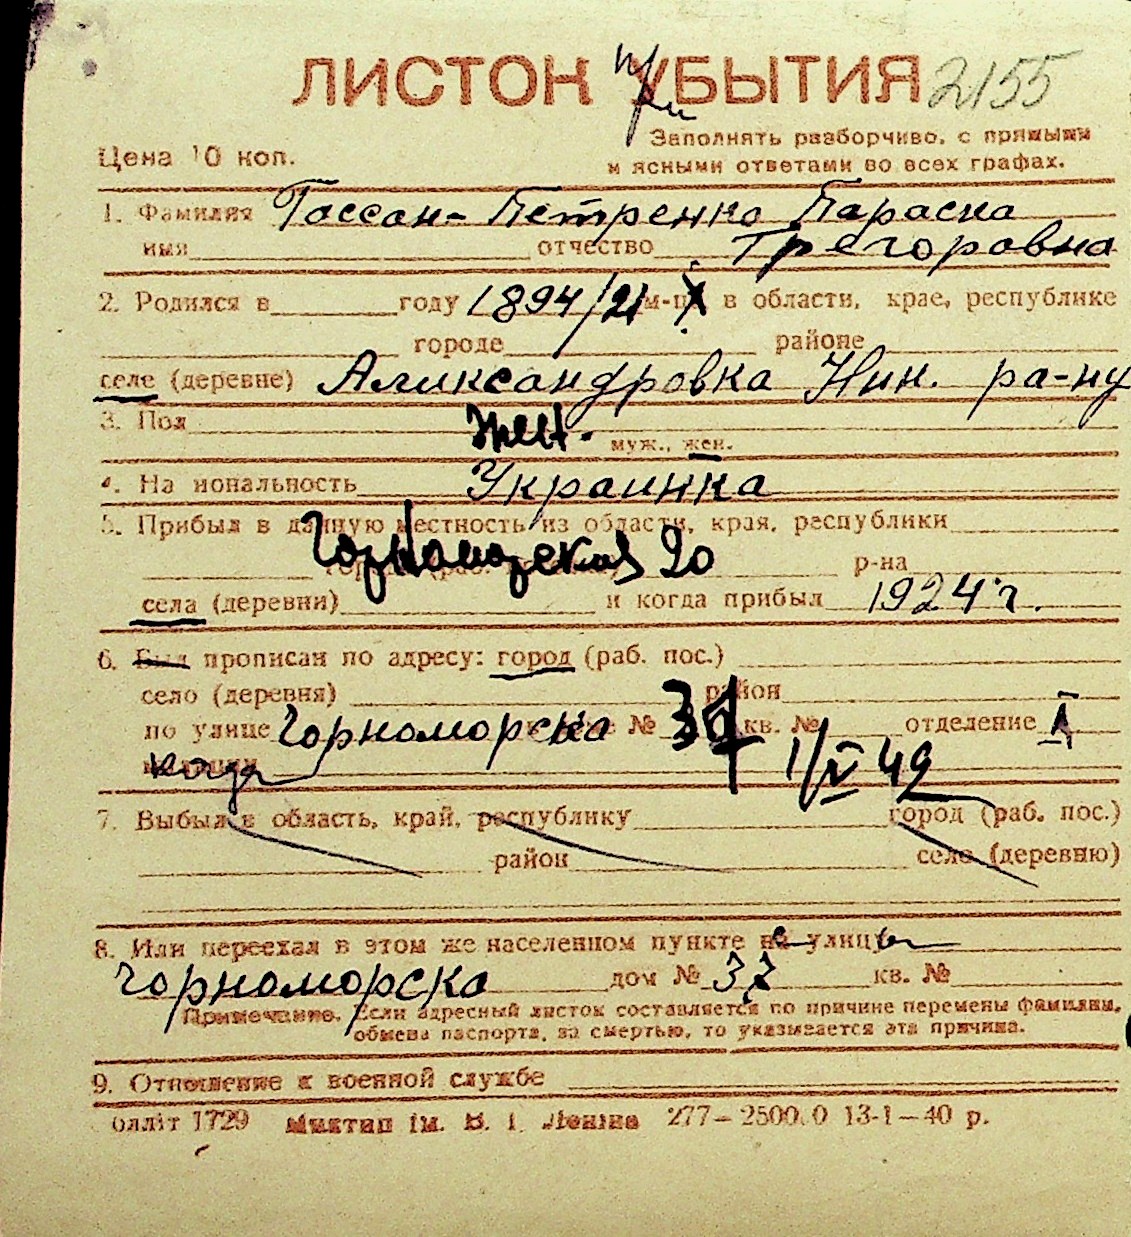 ЛИСТОК УБЫТИЯ 2155
при
Заполнять разборчиво, с прямыми
Цена 10 коп.
и ясными ответами во всех графах.
1. Фамилия Гассан-Петренко Параска
имя отчество Григоровна
2. Родился в году 1894/21 м-ц X в области, крае, республике
городе районе
селе (деревне) Александровка Ник. ра-ну
3. Пол жен. муж., жен.
4. Национальность Украинка
5. Прибыл в данную местность из области, края, республики
р-на
села (деревни) и когда прибыл 1924 г.
6. Был прописан по адресу: город (раб. пос.)
село (деревня) район
по улице Чорноморска № 37 кв. № отделение 1
когда 1/IV 49
7. Выбыл в область, край, республику город (раб. пос.)
район село (деревню)
8. Или переехал в этом же населенном пункте на улицу
Чорноморска дом № 37 кв. №
Примечание. Если адресный листок составляется по причине перемены фамилии,
обмена паспорта, за смертью, то указывается эта причина.
9. Отношение к военной службе
Облліт 1729 Миктип ім. В. І. Леніна 277–2500.0 13-1–40 р.